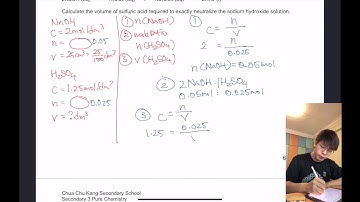 Calculate the volume of sulfuric acid required to exactly neutralize the sodium hydroxide solution.
NaOH
C = 2mol/dm³
n = 0.05
V = 25cm³ = 25/1000 dm³
H₂SO₄
C = 1.25mol/dm³
n = 0.025
V = ? dm³
① n(NaOH)
② mole ratio
n(H₂SO₄)
③ V(H₂SO₄)
① C = n/V
2 = n/0.025
n(NaOH) = 0.05mol
② 2NaOH : H₂SO₄
0.05mol : 0.025mol
③ C = n/V
1.25 = 0.025/
6
Chua Chu Kang Secondary School
Secondary 3 Pure Chemistry